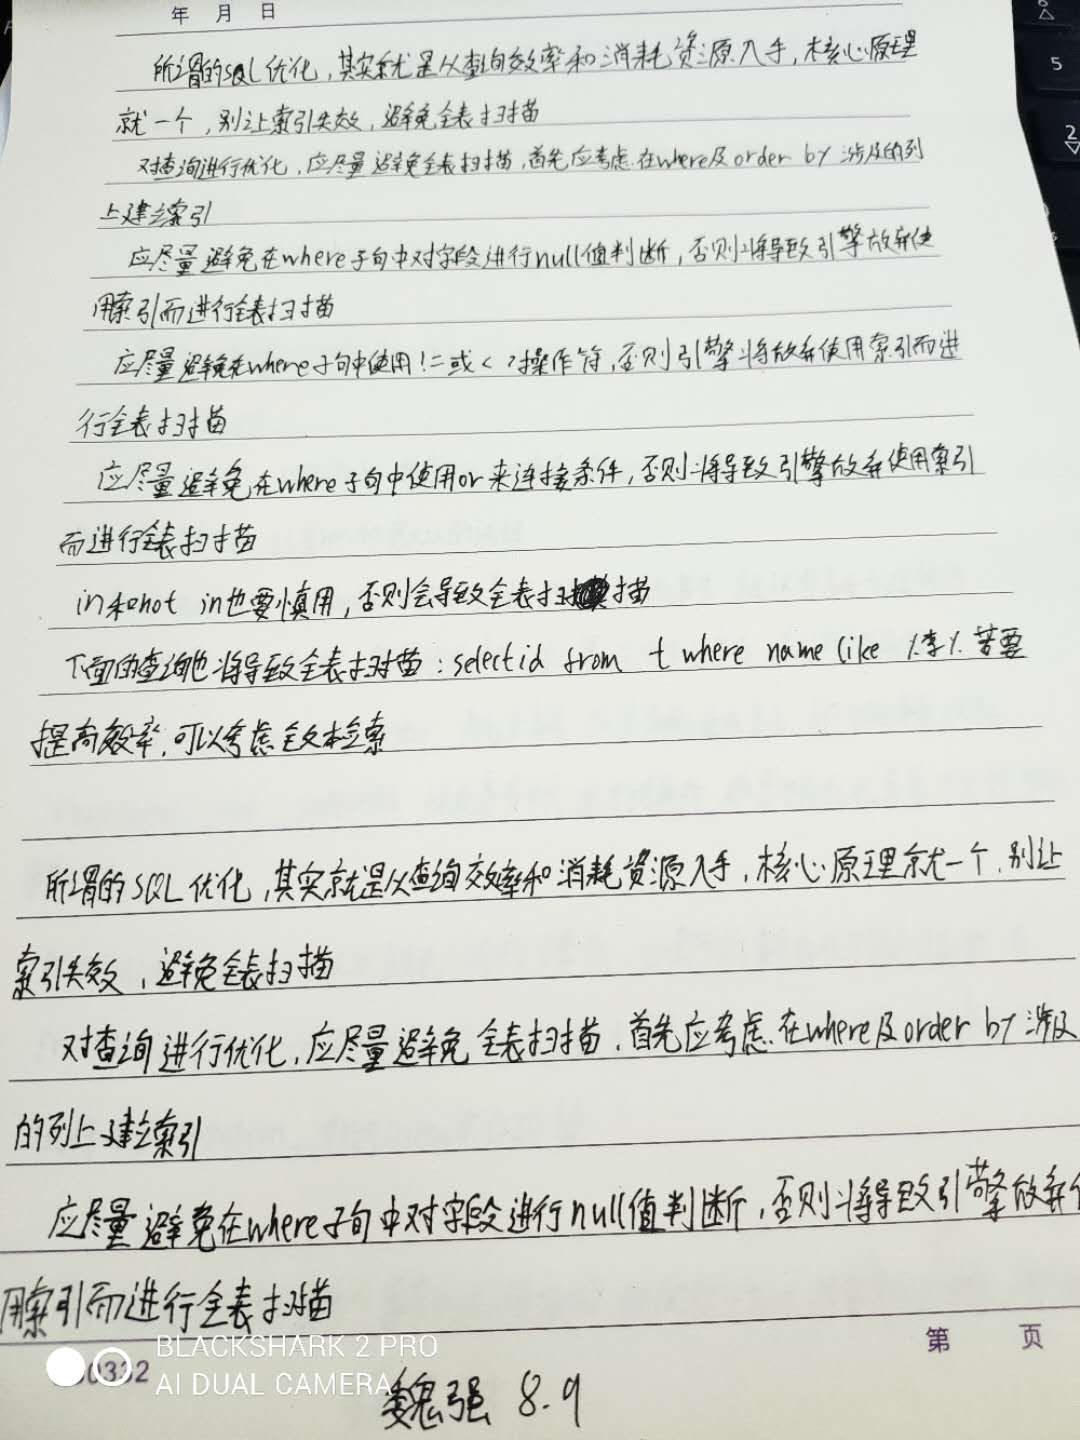 年 月 日
所谓的SQL优化,其实就是从查询效率和消耗资源入手,核心原理
就一个,别让索引失效,避免全表扫描
对查询进行优化,应尽量避免全表扫描,首先应考虑在where及order by 涉及的列
上建立索引
应尽量避免在where子句中对字段进行null值判断,否则将导致引擎放弃使
用索引而进行全表扫描
应尽量避免在where子句中使用!=或<>操作符,否则引擎将放弃使用索引而进
行全表扫描
应尽量避免在where子句中使用or来连接条件,否则将导致引擎放弃使用索引
而进行全表扫描
in和not in也要慎用,否则会导致全表扫描
下面的查询也将导致全表扫描:select id from t where name like %李% 若要
提高效率,可以考虑全文检索
所谓的SQL优化,其实就是从查询效率和消耗资源入手,核心原理就一个,别让
索引失效,避免全表扫描
对查询进行优化,应尽量避免全表扫描,首先应考虑在where及order by 涉及
的列上建立索引
应尽量避免在where子句中对字段进行null值判断,否则将导致引擎放弃
用索引而进行全表扫描
第 页
BLACKSHARK 2 PRO
AI DUAL CAMERA
魏强 8.9